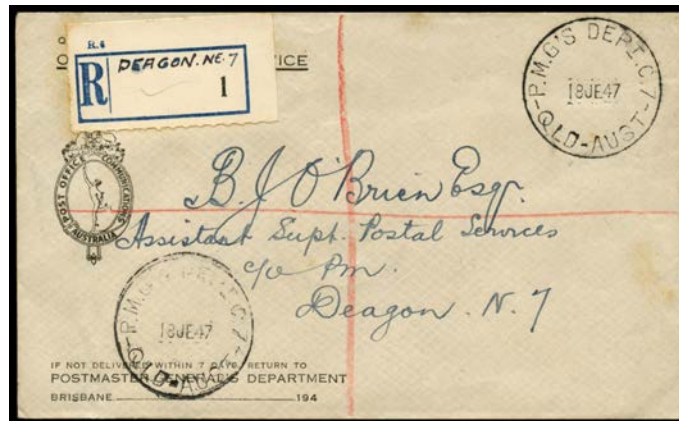 R.6
R DEAGON. NE. 7
1
P.M.G'S DEPT. C. 7
18JE47
QLD-AUST
POST OFFICE COMMUNICATIONS
AUSTRALIA
B. J. O'Brien Esqr.
Assistant Supt. Postal Services
c/o Pm.
Deagon. N. 7
P.M.G'S DEPT. C. 7
18JE47
QLD-AUST
IF NOT DELIVERED WITHIN 7 DAYS, RETURN TO
POSTMASTER GENERAL'S DEPARTMENT
BRISBANE 194